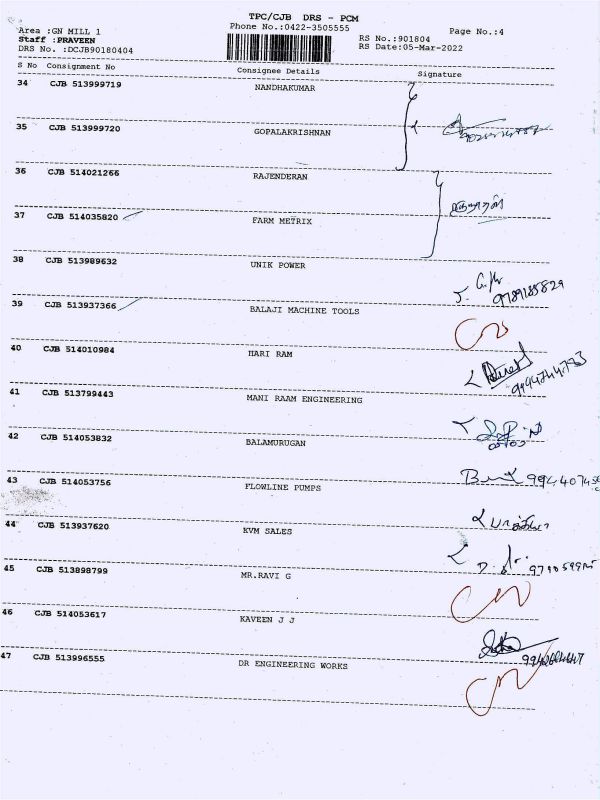 TPC/CJB DRS - PCM
Area :GN MILL 1 Phone No.:0422-3505555 Page No.:4
Staff :PRAVEEN RS No.:901804
DRS No. :DCJB90180404 RS Date:05-Mar-2022
S No Consignment No Consignee Details Signature
34 CJB 513999719 NANDHAKUMAR
35 CJB 513999720 GOPALAKRISHNAN
36 CJB 514021266 RAJENDERAN
37 CJB 514035820 FARM METRIX
38 CJB 513989632 UNIK POWER
39 CJB 513937366 BALAJI MACHINE TOOLS
40 CJB 514010984 HARI RAM
41 CJB 513799443 MANI RAAM ENGINEERING
42 CJB 514053832 BALAMURUGAN
43 CJB 514053756 FLOWLINE PUMPS
44 CJB 513937620 KVM SALES
45 CJB 513898799 MR.RAVI G
46 CJB 514053617 KAVEEN J J
47 CJB 513996555 DR ENGINEERING WORKS